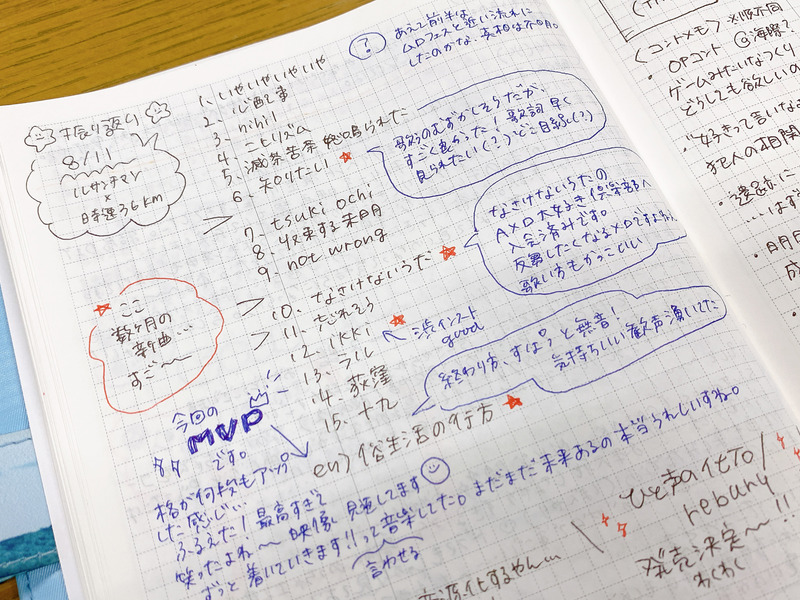 ☆振り返り☆
8/11
ルサンチマン
×
時速36km
1. いやいやいやいや
2. 心配事
3. nihil
4. ニヒリズム
5.
6. 知りたい ☆
7. tsuki ochi
8. 収束する来月
9. not wrong
10. なさけないうた ☆
11. 忘れそう
12. ikki ☆
13. ラル
14. 荻窪
15. 十九
en) 俗生活の行方 ☆
?
あえて前半は
ムロフェスと近い流れに
したのかな、真相は不明。
すごく良かった!歌詞早く
見られたい(?)どこ目線(?)
なさけないうたの
Aメロ大好き倶楽部へ
入会済みです。
反芻したくなるメロですよね、
歌い方もかっこいい
渋イントロ
good
終わり方、すぱっと無音!
気持ちいい歓声湧いてた
☆ ここ
数ヶ月の
新曲…
すご〜
今回の
MVP
です。
格が何段もアップ
した感じ…
ふるえた!最高すぎて
笑ったよね〜映像に見返してます
ずっと着いていきます!!って音楽してた。まだまだ未来あるの本当うれしいすね。
言わせる
音源化するやん…
ひと声の化TO /
rebury
発売決定〜!!
わくわく
〈コントメモ〉 ※順不同
・OPコント
ゲームみたいなつくり
どうしても欲しいの
・"好きって言いな
犯人の4日間
…はず